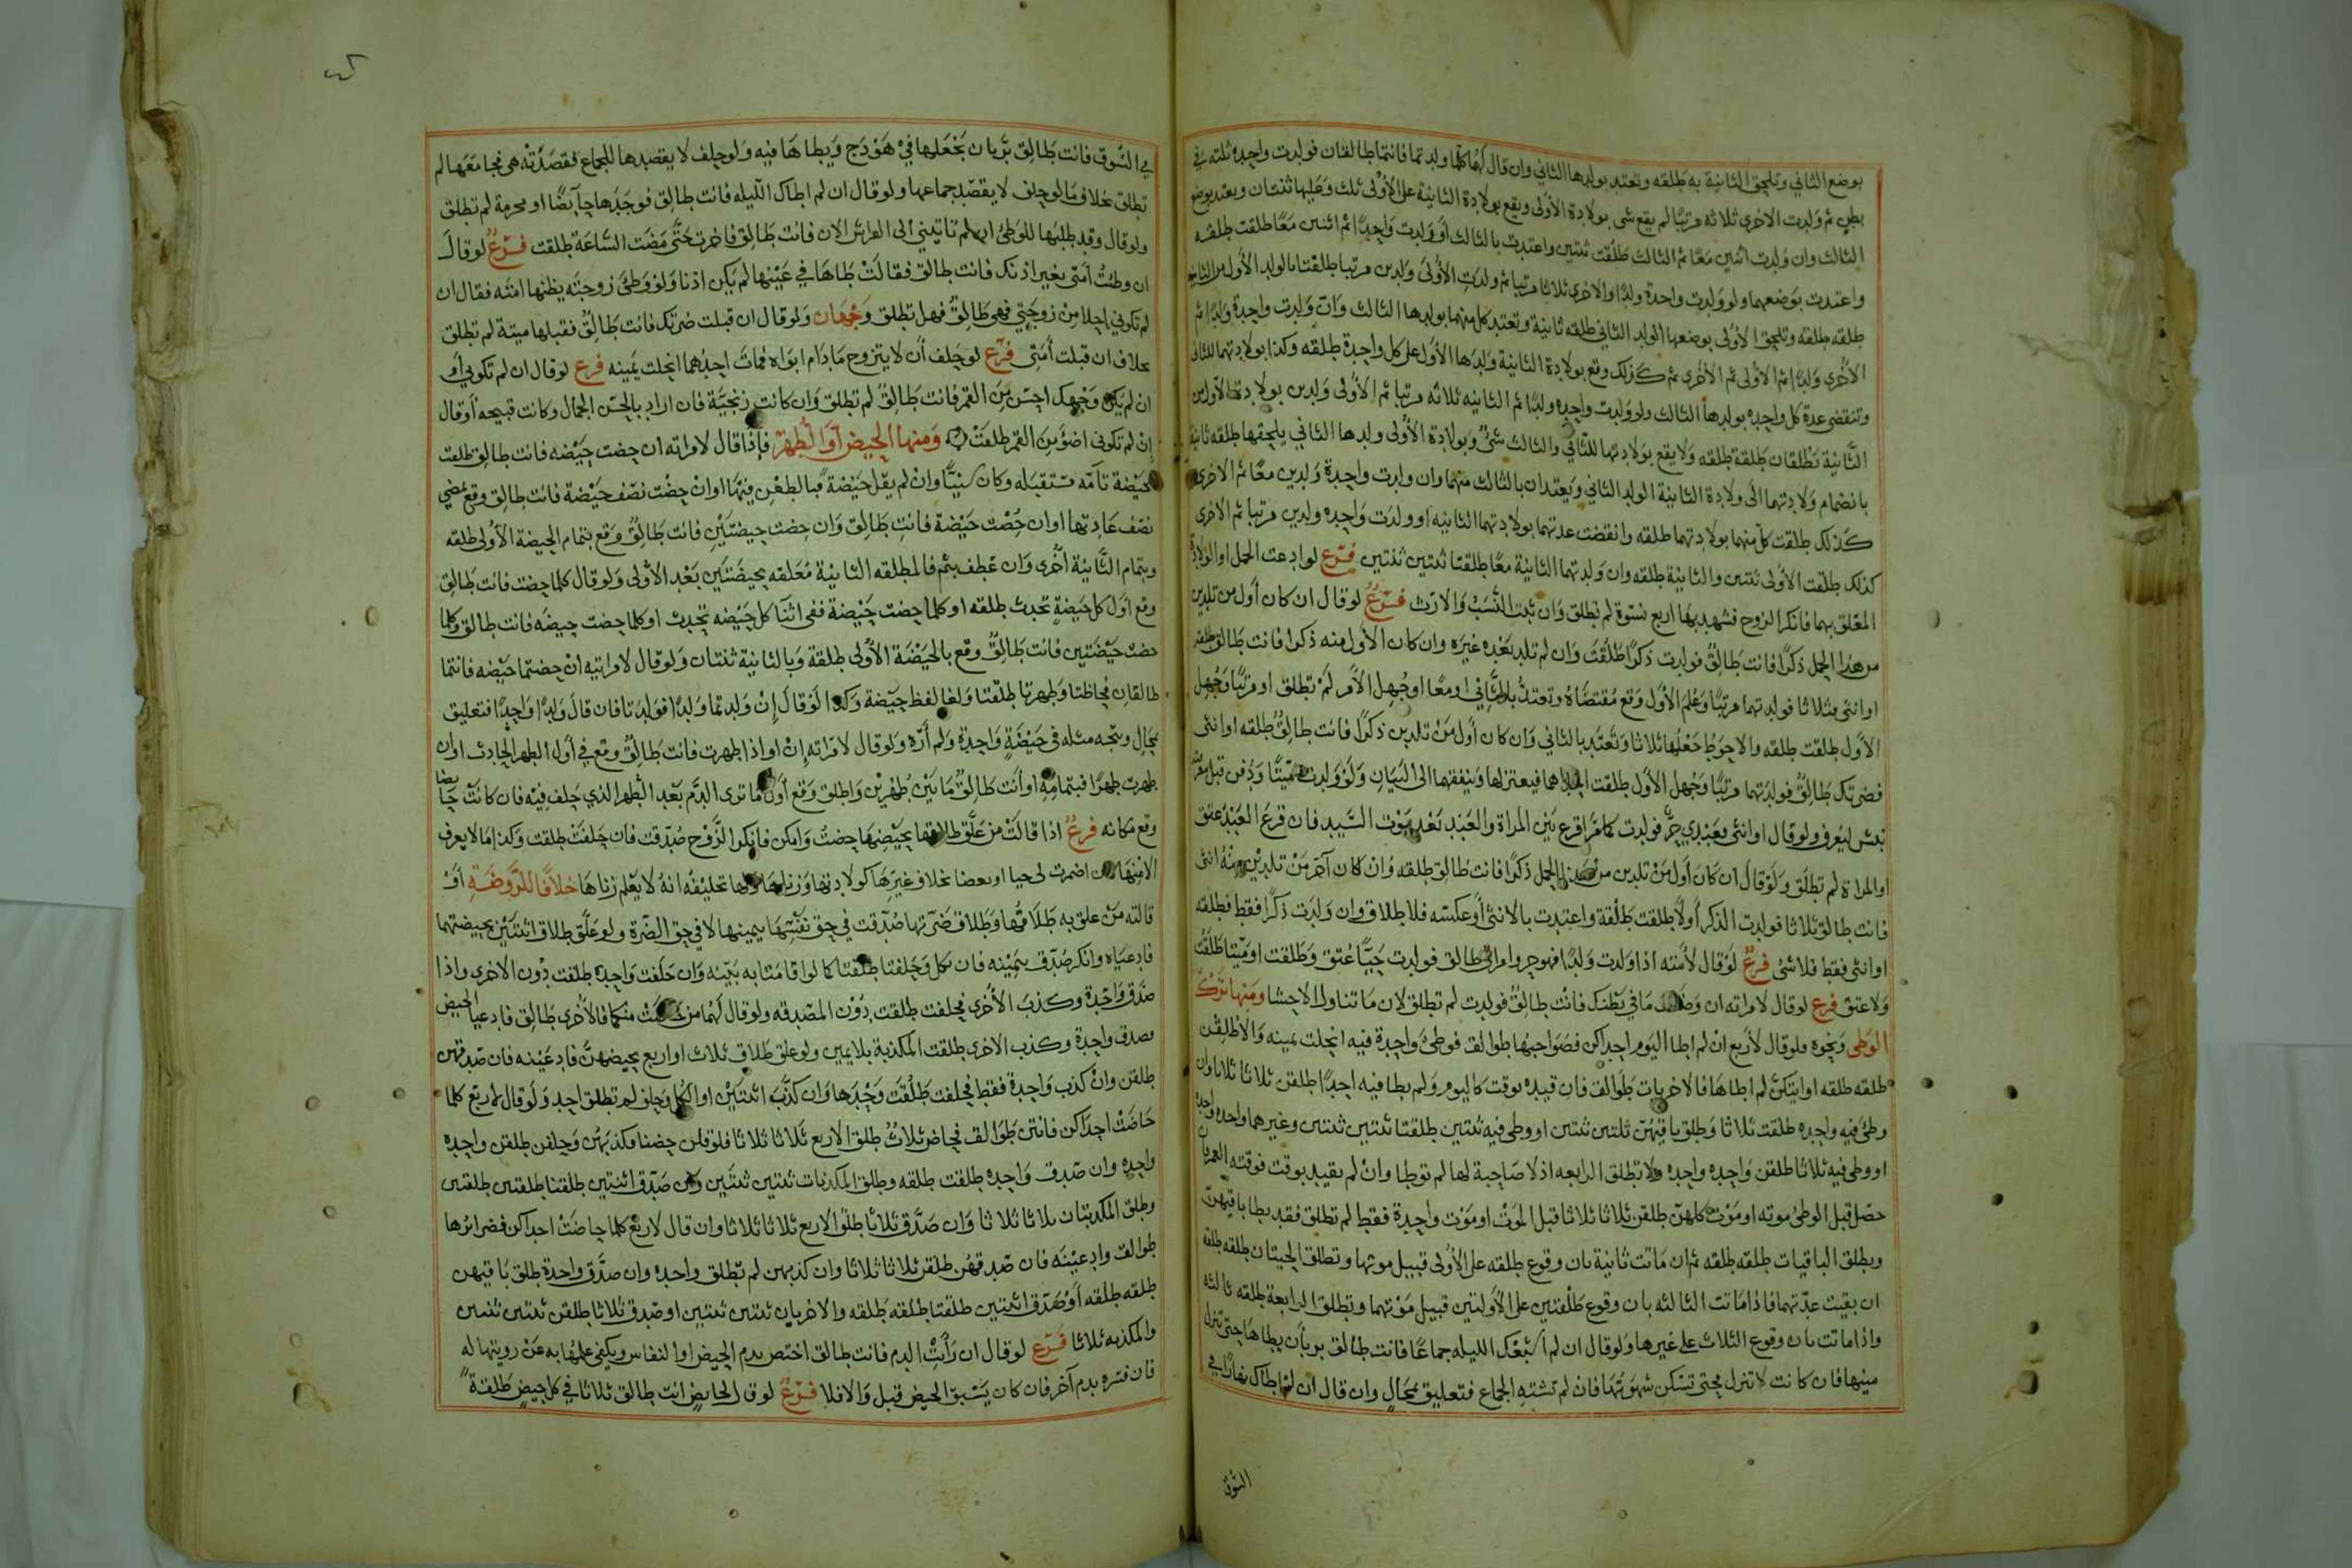 بوضع الثاني وتلحق الثانية به طلقه وتعتد بولدها الثاني وان قال لهما كلما ولدتما فانتما طالقتان فولدت واحدة ثلثه في
بطن ثم ولدت الاخرى ثلاثه مرتبا لم يقع شي بولادة الأولى ويقع بولادة الثانية على الأولى ثلث وعليها ثنتان ويعتد بوضع
الثالث وان ولدت اثنين معا ثم الثالث طلقت ثنتين واعتدت بالثالث أو ولدت واحدا ثم اثنين معا طلقت طلقه
واعتدت بوضعهما ولو ولدت واحدة ولدا والاخرى ثلاثا مرتبا ثم ولدت الأولى ولدين مرتبا طلقتا بالولد الأول من الثانية
طلقه طلقه وتلحق الأولى بوضعها الولد الثاني طلقه ثانية وتعتد كل منهما بولدها الثالث وان ولدت واحدة ولدا ثم
الأخرى ولدا ثم الأولى ثم الأخرى ثم كذلك وقع بولادة الثانية ولدها الأول على كل واحدة طلقه وكذا بولادتهما للثاني
وتنقضي عدة كل واحده بولدها الثالث ولو ولدت واحده ولدا ثم الثانيه ثلاثه مرتبا ثم الأولى ولدين بولادتها الأول من
الثانية تطلقان طلقة طلقه ولا يقع بولادتها للثاني والثالث شئ وبولادة الأولى ولدها الثاني يلحقها طلقه ثانية
بانضمام ولادتهما الى ولادة الثانية الولد الثاني ويعتدان بالثالث منهما وان ولدت واحدة ولدين معا ثم الاخرى
كذلك طلقت كل منهما بولادتهما طلقه وانقضت عدتهما بولادتهما الثانيه او ولدت واحده ولدين مرتبا ثم الأخرى
كذلك طلقت الأولى ثنتين والثانية طلقه وان ولدتهما الثانية معا طلقتا ثنتين ثنتين فرع لو ادعت الحمل او الولادة
المعلق بهما فانكر الزوج فشهد بها اربع نسوة لم تطلق وان ثبت النسب والارث فرع لو قال ان كان أول من تلدين
من هذا الحمل ذكرا فانت طالق فولدت ذكرا طلقت وان لم تلد بعده غيره وان كان الأول منه ذكرا فانت طالق طلقه
او انثى فثلاثا فولدتهما مرتبا وعلم الأول وقع مقتضاه وتعتد بالثاني او معا او جهل الأمر لم تطلق او مرتبا وجهل
الأول طلقت طلقه والاحوط جعلها ثلاثا وتعتد بالثاني وان كان أول من تلدين ذكرا فانت طالق طلقه او انثى
فضرتك طالق فولدتهما مرتبا وجهل الأول طلقت احداهما فيعتزلها وينفقهما الى البيان ولو ولدت ميتا ودفن قبل
نبش ليعرف ولو قال او انثى فعبدي حر فولدت كما مر اقرع بين المراة والعبد بعد موت السيد فان قرع العبد عتق
او المراة لم تطلق ولو قال ان كان أول من تلدين من هذا الحمل ذكرا فانت طالق طلقه وان كان آخر من تلدين منه انثى
فانت طالق ثلاثا فولدت الذكر أولا طلقت طلقة واعتدت بالانثى أو عكسه فلا طلاق وان ولدت ذكرا فقط فطلقه
او انثى فقط فلا شئ فرع لو قال لأمته اذا ولدت ولدا فهو حر وامراتي طالق فولدت حيا عتق وطلقت او ميتا طلقت
ولا عتق فرع لو قال لامراته ان وضعت ما في بطنك فانت طالق فولدت لم تطلق لان ما تناول الاحشا ومنها ترك
الوطى ونحوه فلو قال لأربع ان لم اطا اليوم احداكن فصواحبها طوالق فوطئ واحدة فيه انحلت يمينه والا طلقن
طلقه طلقه او ايتكن لم اطاها فالاخريات طوالق فان قيده بوقت كاليوم ولم يطا فيه احدا طلقن ثلاثا ثلاثا وان
وطئ فيه واحده طلقت ثلاثا وطلق باقيهن ثنتين ثنتين او وطى فيه ثنتين طلقتا ثنتين ثنتين وغيرهما واحدة واحدة
او وطى فيه ثلاثا طلقن واحده واحده ولا تطلق الرابعه اذ لا صاحبة لها لم توطا وان لم يقيد بوقت فوقته العمر فان
حصل قبل الوطئ موته او موت كلهن طلقن ثلاثا ثلاثا قبل الموت او موت واحدة فقط لم تطلق فقد يطا باقيهن
ويطلق الباقيات طلقه طلقه ثم ان ماتت ثانية بان وقوع طلقه على الأولى قبيل موتها وتطلق الحيتان طلقه طلقه
ان بقيت عدتهما فاذا ماتت الثالثه بان وقوع طلقتين على الأولتين قبيل موتهما وتطلق الرابعة طلقه ثالثه
واذا ماتت بان وقوع الثلاث على غيرها ولو قال ان لم اشبعك الليله جماعا فانت طالق بر بأن يطاها حتى تنزل
منيها فان كانت لا تنزل فحتى تسكن شهوتها فان لم تشته الجماع فتعليق بمحال وان قال ان لم اطاك نهارا في
السوق
في السوق فانت طالق بر بان يجعلها في هودج ويطاها فيه ولو حلف لا يقصدها للجماع فقصدته هي فجامعها لم
تطلق بخلاف ما لو حلف لا يقصد جماعها ولو قال ان لم اطاك الليله فانت طالق فوجدها حائضا او محرمة لم تطلق
ولو قال وقد طلبها للوطئ ان لم تاتيني الى الفراش الان فانت طالق فاخرت حتى مضت الساعة طلقت فرع لو قال
ان وطئت أمتي بغير اذنك فانت طالق فقالت طاها في عينها لم يكن اذنا ولو وطئ زوجته يظنها امته فقال ان
لم تكوني احلا من زوجتي فهي طالق فهل تطلق وجهان ولو قال ان قبلت ضرتك فانت طالق فقبلها ميتة لم تطلق
بخلاف ان قبلت أمتي فرع لو حلف أن لا يتزوج مادام ابواه فمات احدهما انحلت يمينه فرع لو قال ان لم تكوني أو
ان لم يكن وجهك احسن من القمر فانت طالق لم تطلق وان كانت زنجية فان اراد بالحسن الجمال وكانت قبيحه أو قال
إن لم تكوني اضوأ من القمر طلقت ومنها الحيض أو الطهر فإذا قال لامراته ان حضت حيضه فانت طالق طلقت
بحيضة تامه مستقبله وكان سنيا وان لم يقل حيضة فبالطعن فيها او ان حضت نصف حيضة فانت طالق وقع بمضي
نصف عادتها او ان حضت حيضة فانت طالق وان حضت حيضتين فانت طالق وقع بتمام الحيضة الأولى طلقه
وبتمام الثانية أخرى وان عطف بثم فالطلقه الثانية معلقه بحيضتين بعد الأولى ولو قال كلما حضت فانت طالق
وقع أول كل حيضة تحدث طلقه او كلما حضت حيضة ففي اثنا كل حيضه تحدث او كلما حضت حيضه فانت طالق وكلما
حضت حيضتين فانت طالق وقع بالحيضة الأولى طلقة وبالثانية ثنتان ولو قال لامراتيه ان حضتما حيضه فانتما
طالقان فحاضتا وطهرتا طلقتا ولغا لفظ حيضة وكذا لو قال إن ولدتما ولدا فولدتا فان قال ولدا واحدا فتعليق
بمحال ويتجه مثله في حيضة واحدة ولم أره ولو قال لامراته إن او اذا طهرت فانت طالق وقع في أول الطهر الحادث او ان
طهرت طهرا فبتمامه او أنت طالق ما بين طهرين واطلق وقع أول ما ترى الدم بعد الطهر الذي حلف فيه فان كانت حايضا
وقع مكانه فرع اذا قالت من علق طلاقها بحيضها حضت وامكن فانكر الزوج صدقت فان حلفت طلقت وكذا ما لا يعرف
الا منها كان اضمرت لي حبا او بعضا بخلاف غيرها كولادتها وزناها ولها تحليفه انه لا يعلم زناها خلافا للروضة أو
قالته من علق به طلاقها وطلاق ضرتها صدقت في حق نفسها بيمينها لا في حق الضرة ولو علق طلاق اثنتين بحيضتهما
فادعياه وانكر صدق بيمينه فان نكل وحلفتا طلقتا كما لو اقامتا به بينه وان حلفت واحدة طلقت دون الاخرى واذا
صدق واحدة وكذب الأخرى فحلفت طلقت دون المصدقه ولو قال لهما من حاضت منكما فالأخرى طالق فادعيا الحيض
فصدق واحدة وكذب الاخرى طلقت المكذبة بلا يمين ولو علق طلاق ثلاث او اربع بحيضهن فادعينه فان صدقهن
طلقن وان كذب واحدة فقط فحلفت طلقت وحدها وان كذب اثنتين او الكل وحلفن لم تطلق احد ولو قال لاربع كلما
حاضت احداكن فانتن طوالق فحاض ثلاث طلق الأربع ثلاثا ثلاثا فلو قلن حضنا فكذبهن وحلفن طلقن واحدة
واحدة وان صدق واحدة طلقت طلقه وطلق المكذبات ثنتين ثنتين وان صدق اثنتين طلقتا طلقتين طلقتين
وطلق المكذبتان ثلاثا ثلاثا وان صدق ثلاثا طلق الاربع ثلاثا ثلاثا وان قال لاربع كلما حاضت احداكن فضرائرها
طوالق وادعينه فان صدقهن طلقن ثلاثا ثلاثا وان كذبهن لم تطلق واحده وان صدق واحدة طلق باقيهن
طلقه طلقه أو صدق اثنتين طلقتا طلقه طلقه والاخريان ثنتين ثنتين او صدق ثلاثا طلقن ثنتين ثنتين
والمكذبه ثلاثا فرع لو قال ان رأيت الدم فانت طالق اختص بدم الحيض او النفاس ويكفي علمها به عن رويتها له
فان فسره بدم آخر فان كان يسبق الحيض قبل والا فلا فرع لو قال لحايض انت طالق ثلاثا في كل حيض طلقة